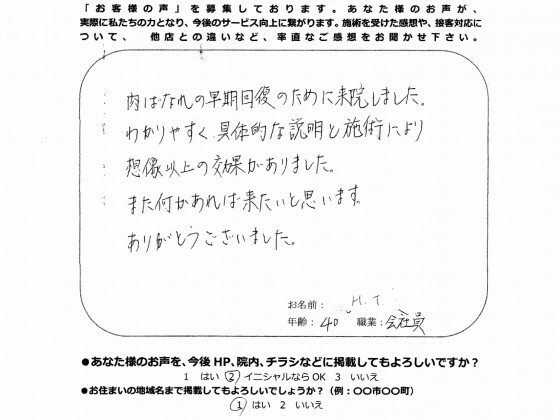 「お客様の声」を募集しております。あなた様のお声が、
実際に私たちの力となり、今後のサービス向上に繋がります。施術を受けた感想や、接客対応に
ついて、 他店との違いなど、率直なご感想をお聞かせ下さい。
肉ばなれの早期回復のために来院しました。
わかりやすく、具体的な説明と施術により
想像以上の効果がありました。
また何かあれば来たいと思います。
ありがとうございました。
お名前： H.T.
年齢： 40 職業： 会社員
●あなた様のお声を、今後HP、院内、チラシなどに掲載してもよろしいですか？
1 はい ② イニシャルならOK 3 いいえ
●お住まいの地域名まで掲載してもよろしいでしょうか？（例：〇〇市〇〇町）
① はい 2 いいえ